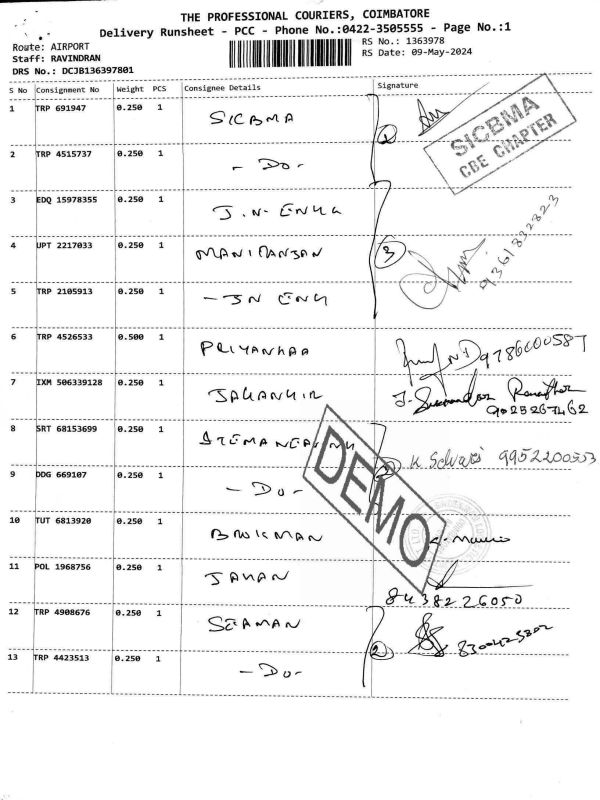 THE PROFESSIONAL COURIERS, COIMBATORE
Delivery Runsheet - PCC - Phone No.:0422-3505555 - Page No.:1
Route: AIRPORT
Staff: RAVINDRAN
DRS No.: DCJB136397801
RS No.: 1363978
RS Date: 09-May-2024
S No Consignment No Weight PCS Consignee Details Signature
1 TRP 691947 0.250 1 SICBMA
SICBMA
CBE CHAPTER
2 TRP 4515737 0.250 1 - Do -
1
3 EDQ 15978355 0.250 1 J.N. ENGG
4 UPT 2217033 0.250 1 3 9361832823
5 TRP 2105913 0.250 1 - JN ENG
6 TRP 4526533 0.500 1 PRIYANKAA 9786000587
7 IXM 506339128 0.250 1 JAHANGIR
9025267462
8 SRT 68153699 0.250 1 K. Selvaraj 9952200553
9 DDG 669107 0.250 1 - Do - 2
DEMO
10 TUT 6813920 0.250 1
11 POL 1968756 0.250 1 JAHAN
8438226050
12 TRP 4908676 0.250 1 SEAMAN
2
13 TRP 4423513 0.250 1 - Do -